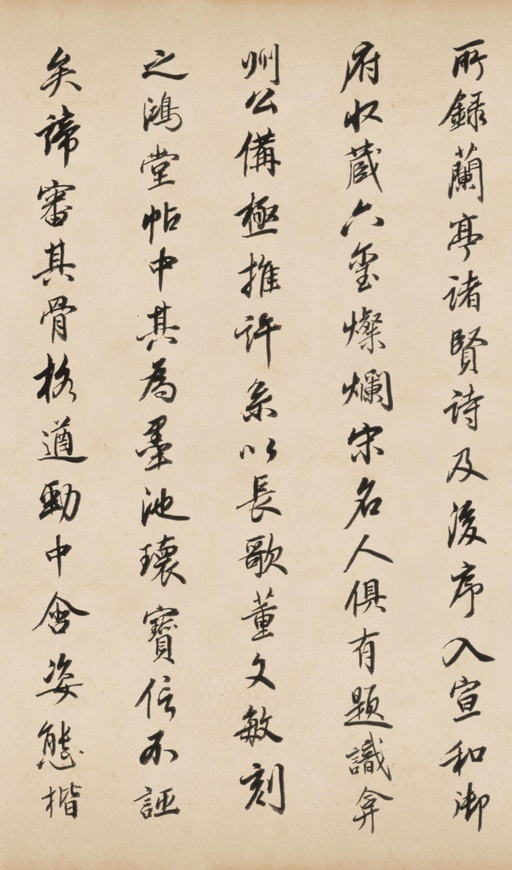 所錄蘭亭諸賢詩及後序入宣和御
府收蔵六璽燦爛宋名人俱有題識弇
州公備極推許系以長歌董文敏刻
之鴻堂帖中其為墨池瓌寶信不誣
矣諦審其骨格遒勁中含姿態楷